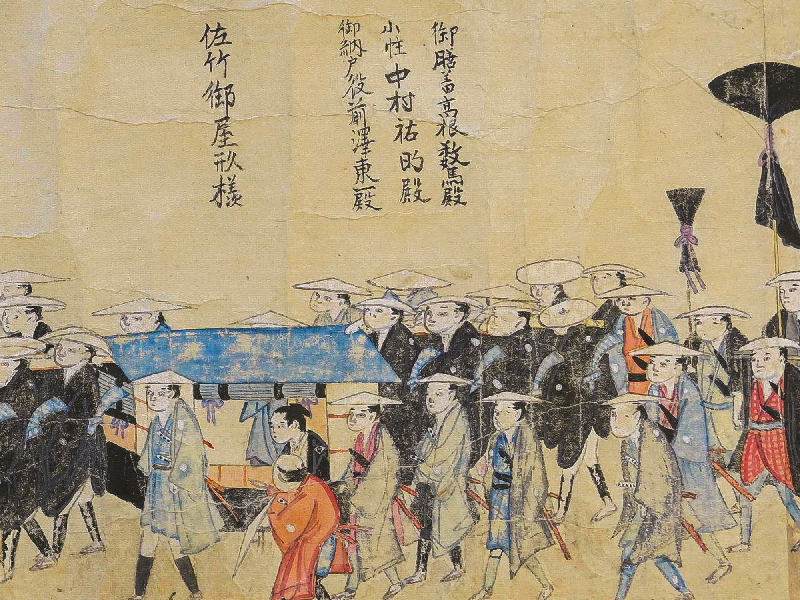 御膳番高根数馬殿
小性中村祐的殿
御納戸役前澤東一殿
佐竹御屋形様